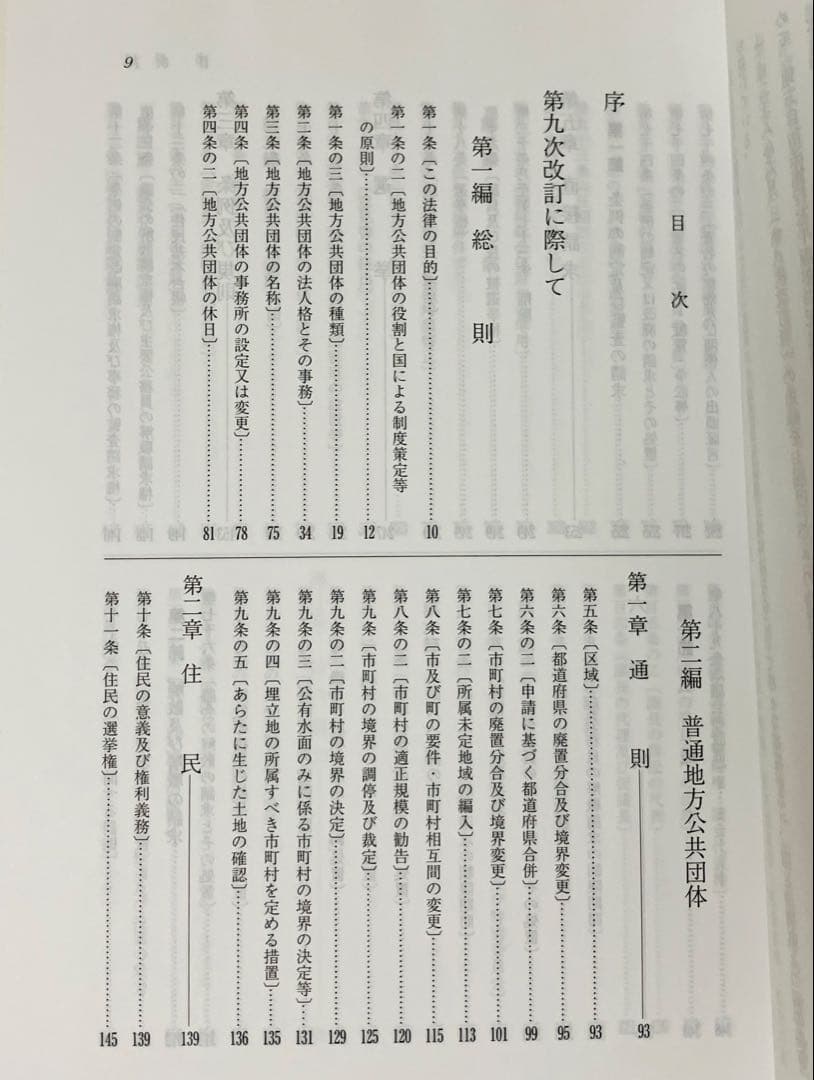 9
目次
序
第九次改訂に際して
第一編 総則
第一条〔この法律の目的〕……10
第一条の二〔地方公共団体の役割と国による制度策定等
の原則〕……12
第一条の三〔地方公共団体の種類〕……19
第二条〔地方公共団体の法人格とその事務〕……34
第三条〔地方公共団体の名称〕……75
第四条〔地方公共団体の事務所の設定又は変更〕……78
第四条の二〔地方公共団体の休日〕……81
第二編 普通地方公共団体
第一章 通則――93
第五条〔区域〕……93
第六条〔都道府県の廃置分合及び境界変更〕……95
第六条の二〔申請に基づく都道府県合併〕……99
第七条〔市町村の廃置分合及び境界変更〕……101
第七条の二〔所属未定地域の編入〕……113
第八条〔市及び町の要件・市町村相互間の変更〕……115
第八条の二〔市町村の適正規模の勧告〕……120
第九条〔市町村の境界の調停及び裁定〕……125
第九条の二〔市町村の境界の決定〕……129
第九条の三〔公有水面のみに係る市町村の境界の決定等〕……131
第九条の四〔埋立地の所属すべき市町村を定める措置〕……135
第九条の五〔あらたに生じた土地の確認〕……136
第二章 住民――139
第十条〔住民の意義及び権利義務〕……139
第十一条〔住民の選挙権〕……145